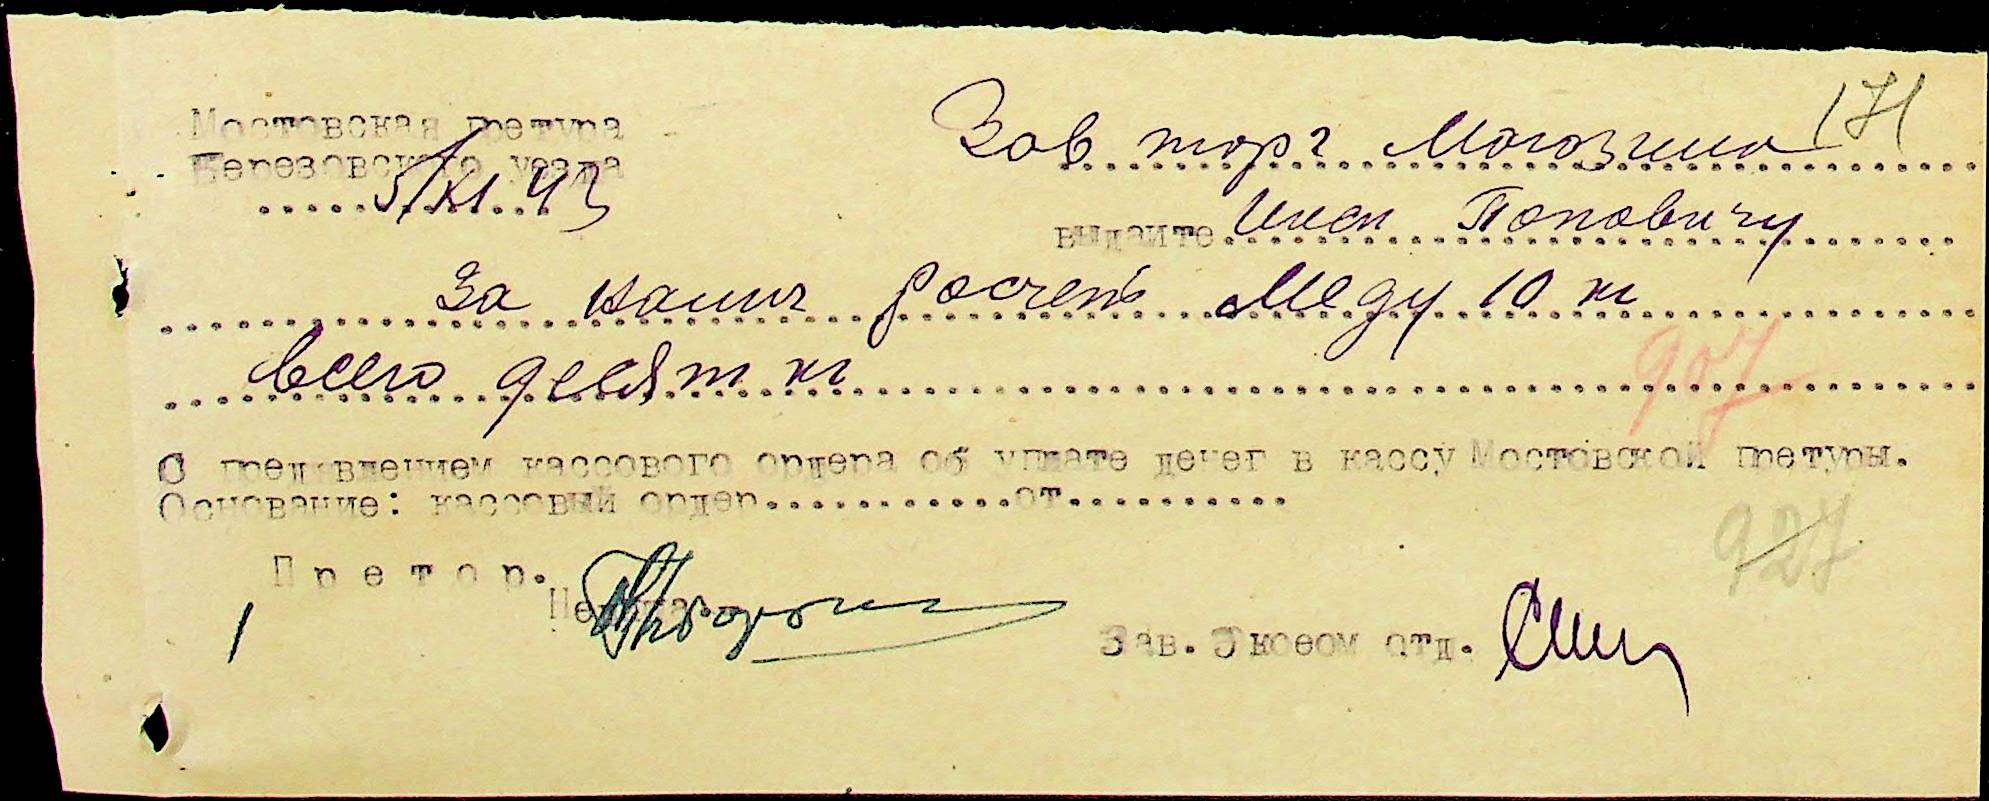 171
Мостовская претура
Березовского уезда
5/XI 43
Зав торг Могозина
выдайте Инсп Поповичу
за налич росчеть Меду 10 кг
всего десят кг
907
С предъявлением кассового ордера об уплате денег в кассу Мостовской претуры.
Основание: кассовый ордер............от...........
927
Претор.
1
Зав. Экоеом отд.